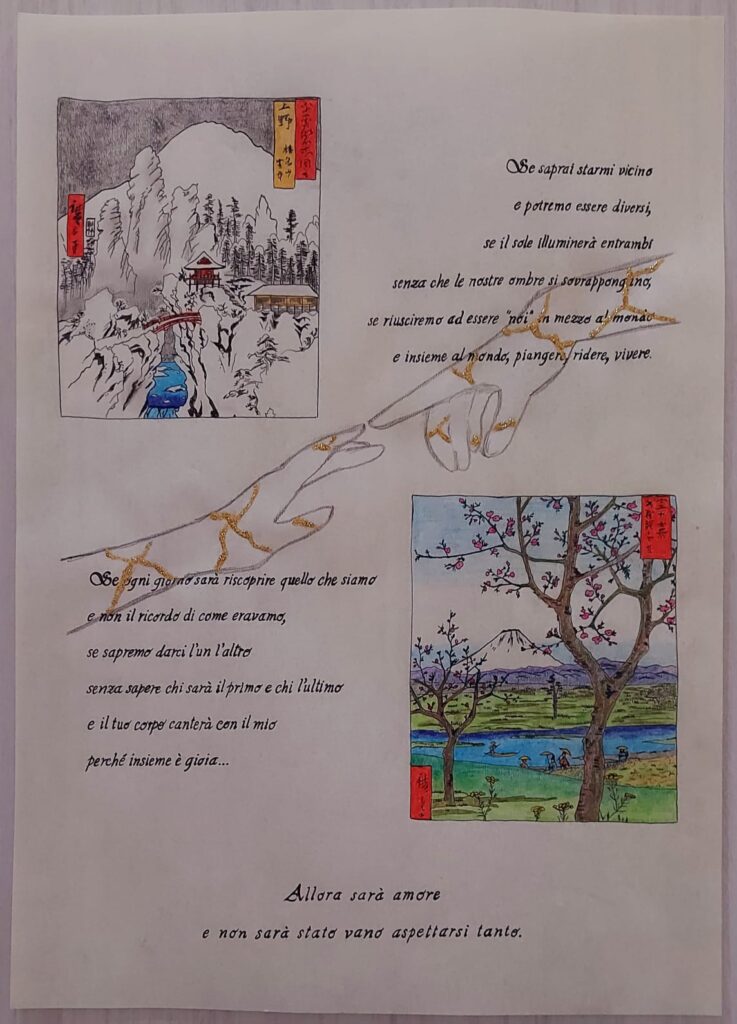 上野
Se saprai starmi vicino
e potremo essere diversi,
se il sole illuminerà entrambi
senza che le nostre ombre si sovrappongano,
se riusciremo ad essere "noi" in mezzo al mondo
e insieme al mondo, piangere, ridere, vivere.
Se ogni giorno sarà riscoprire quello che siamo
e non il ricordo di come eravamo,
se sapremo darci l'un l'altro
senza sapere chi sarà il primo e chi l'ultimo
e il tuo corpo canterà con il mio
perché insieme è gioia...
Allora sarà amore
e non sarà stato vano aspettarsi tanto.